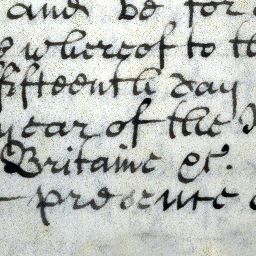 and be for
whereof to th
fifteenth day
year of the
Britaine &c.
presente